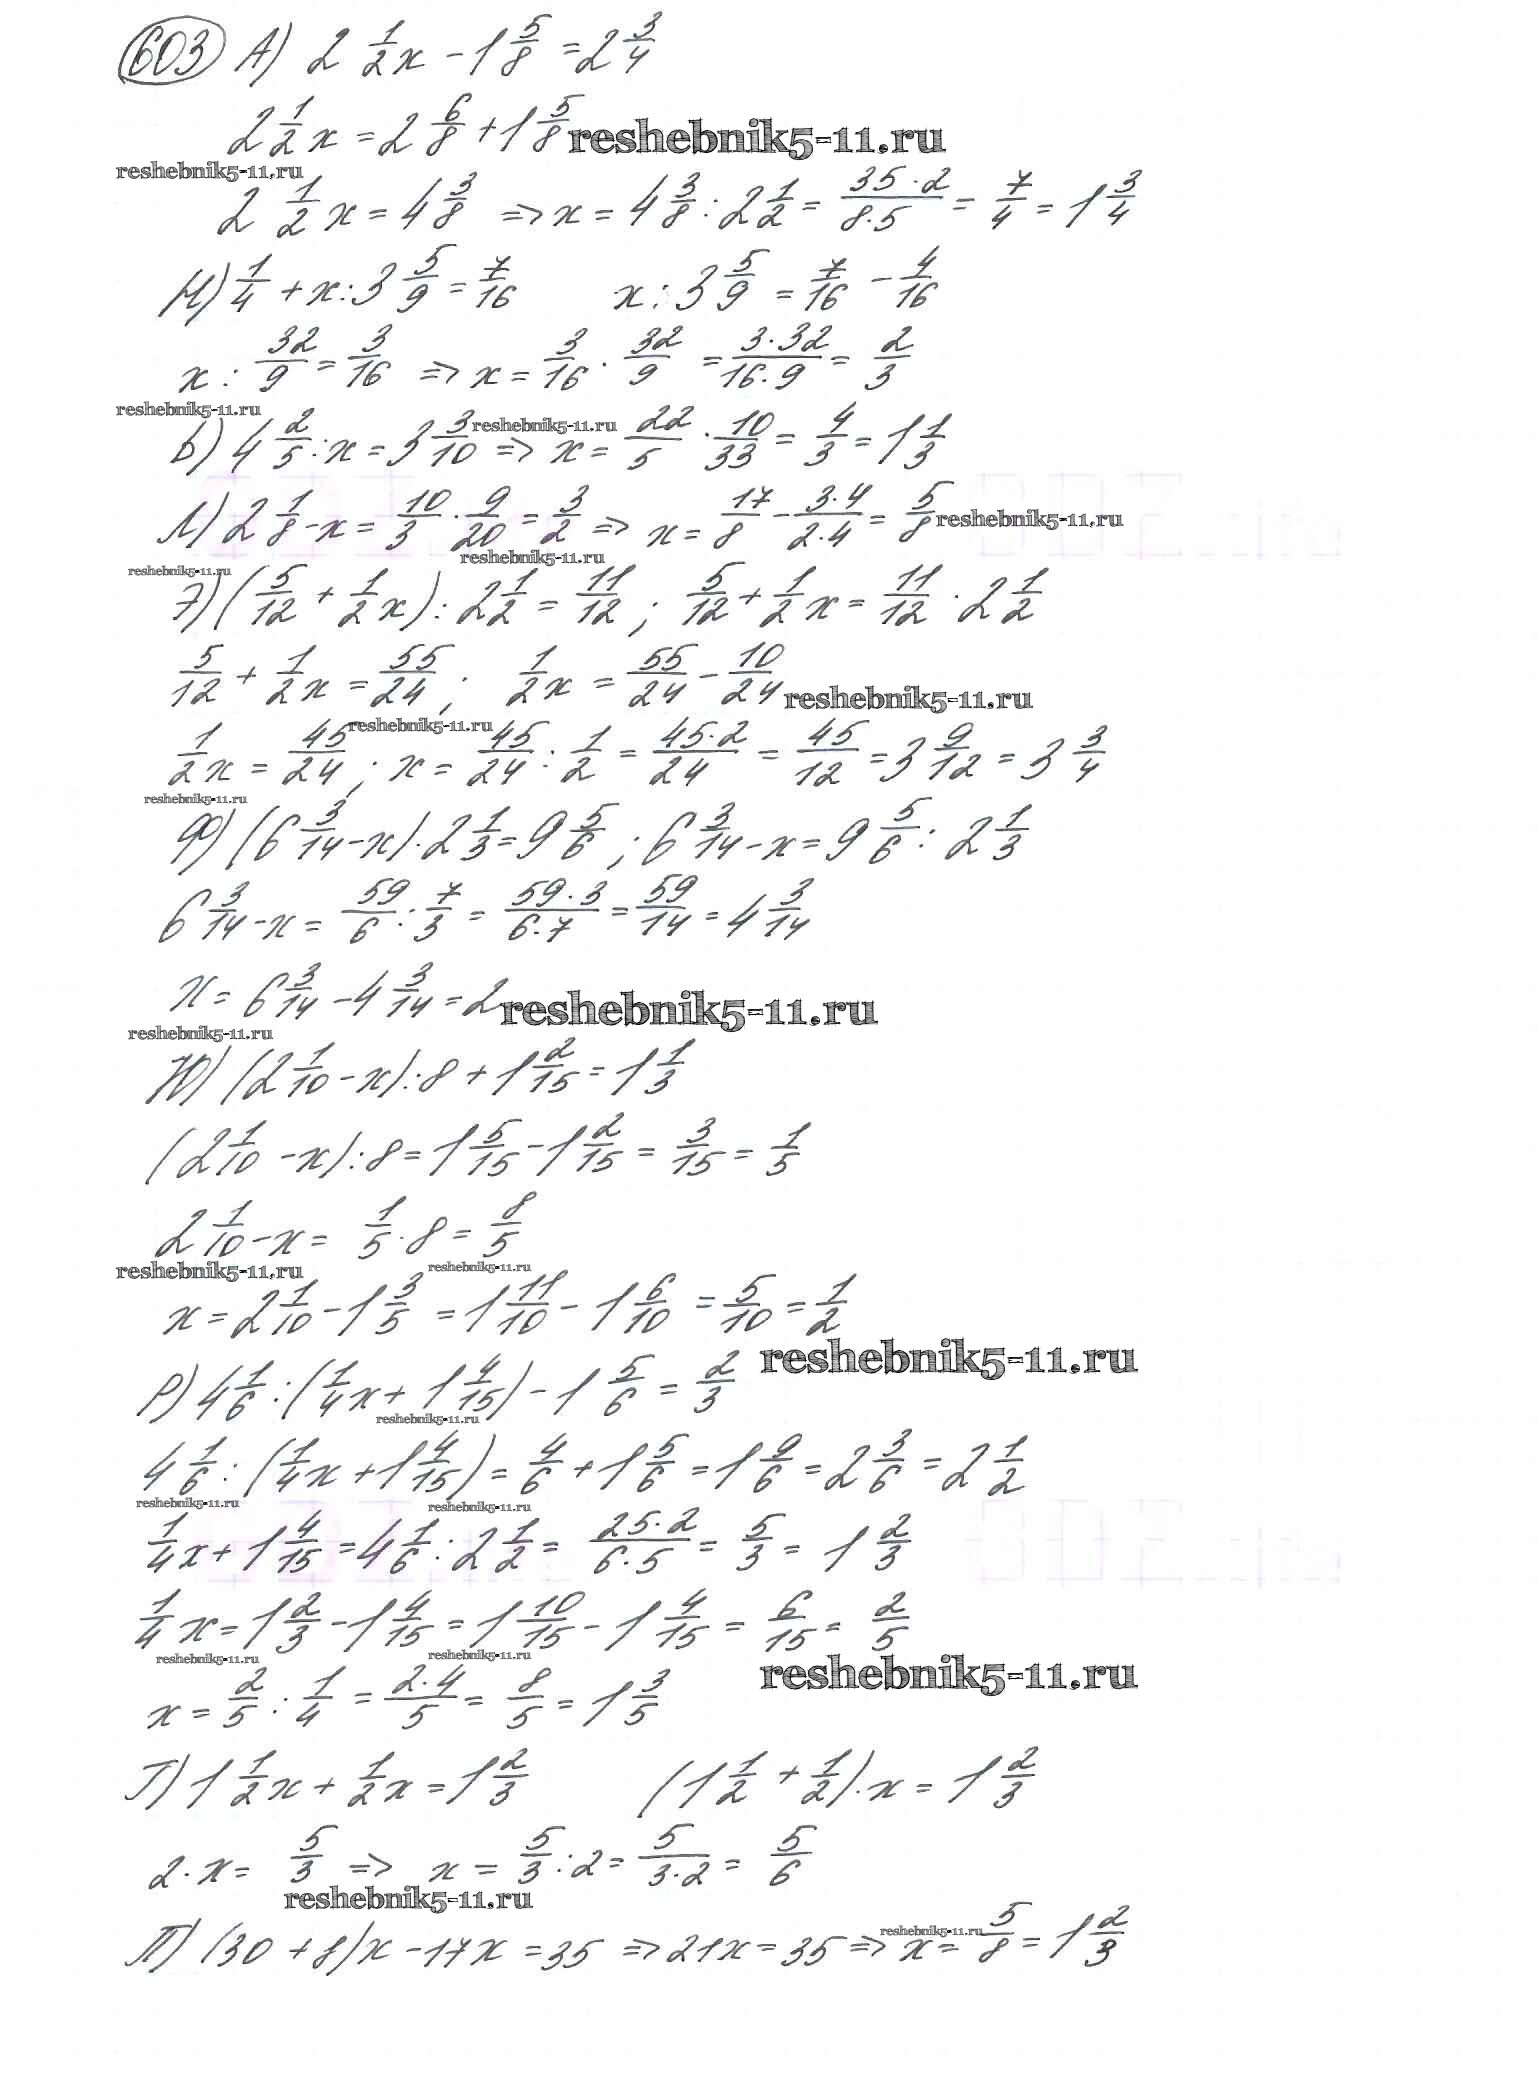 603 А) 2 1/2 x - 1 5/8 = 2 3/4
2 1/2 x = 2 6/8 + 1 5/8 reshebnik5-11.ru
reshebnik5-11.ru
2 1/2 x = 4 3/8 => x = 4 3/8 : 2 1/2 = 35·2/8·5 = 7/4 = 1 3/4
И) 1/4 + x : 3 5/9 = 7/16 x : 3 5/9 = 7/16 - 4/16
x : 32/9 = 3/16 => x = 3/16 · 32/9 = 3·32/16·9 = 2/3
reshebnik5-11.ru reshebnik5-11.ru
Ь) 4 2/5 : x = 3 3/10 => x = 22/5 · 10/33 = 4/3 = 1 1/3
Л) 2 1/8 - x = 10/3 · 9/20 = 3/2 => x = 17/8 - 3·4/2·4 = 5/8 reshebnik5-11.ru
reshebnik5-11.ru
reshebnik5-11.ru
Э) (5/12 + 1/2 x) : 2 1/2 = 11/12 ; 5/12 + 1/2 x = 11/12 · 2 1/2
5/12 + 1/2 x = 55/24 ; 1/2 x = 55/24 - 10/24 reshebnik5-11.ru
reshebnik5-11.ru
1/2 x = 45/24 ; x = 45/24 : 1/2 = 45·2/24 = 45/12 = 3 9/12 = 3 3/4
reshebnik5-11.ru
Ф) (6 3/14 - x) · 2 1/3 = 9 5/6 ; 6 3/14 - x = 9 5/6 : 2 1/3
6 3/14 - x = 59/6 : 7/3 = 59·3/6·7 = 59/14 = 4 3/14
x = 6 3/14 - 4 3/14 = 2 reshebnik5-11.ru
reshebnik5-11.ru
Ю) (2 1/10 - x) : 8 + 1 2/15 = 1 1/3
(2 1/10 - x) : 8 = 1 5/15 - 1 2/15 = 3/15 = 1/5
2 1/10 - x = 1/5 · 8 = 8/5
reshebnik5-11.ru reshebnik5-11.ru
x = 2 1/10 - 1 3/5 = 1 11/10 - 1 6/10 = 5/10 = 1/2
reshebnik5-11.ru
Р) 4 1/6 : (1/4 x + 1 4/15) - 1 5/6 = 2/3
reshebnik5-11.ru
4 1/6 : (1/4 x + 1 4/15) = 4/6 + 1 5/6 = 1 9/6 = 2 3/6 = 2 1/2
reshebnik5-11.ru reshebnik5-11.ru
1/4 x + 1 4/15 = 4 1/6 : 2 1/2 = 25·2/6·5 = 5/3 = 1 2/3
1/4 x = 1 2/3 - 1 4/15 = 1 10/15 - 1 4/15 = 6/15 = 2/5
reshebnik5-11.ru reshebnik5-11.ru reshebnik5-11.ru
x = 2/5 : 1/4 = 2·4/5 = 8/5 = 1 3/5
Г) 1 1/2 x + 1/2 x = 1 2/3 (1 1/2 + 1/2) · x = 1 2/3
2 · x = 5/3 => x = 5/3 : 2 = 5/3·2 = 5/6
reshebnik5-11.ru
П) (30 + 8)x - 17x = 35 => 21x = 35 => x = 5/8 = 1 2/3
reshebnik5-11.ru